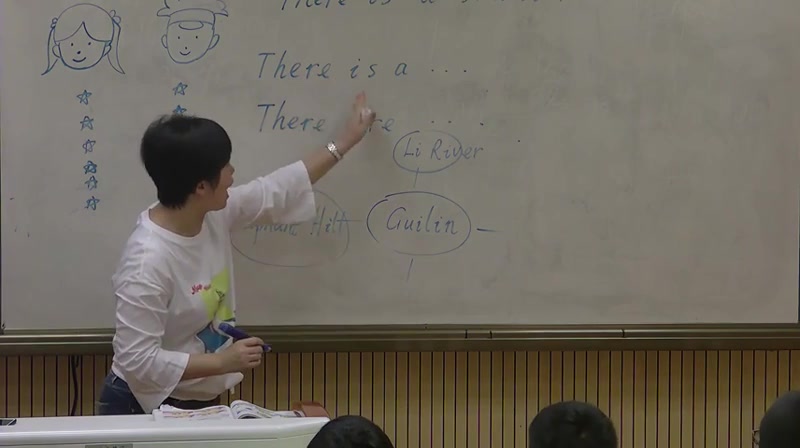 There is a
There is a ...
There are ...
Li River
Hill
Guilin